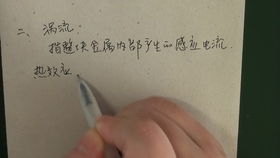 二、涡流：
指整块金属内部产生的感应电流
热效应